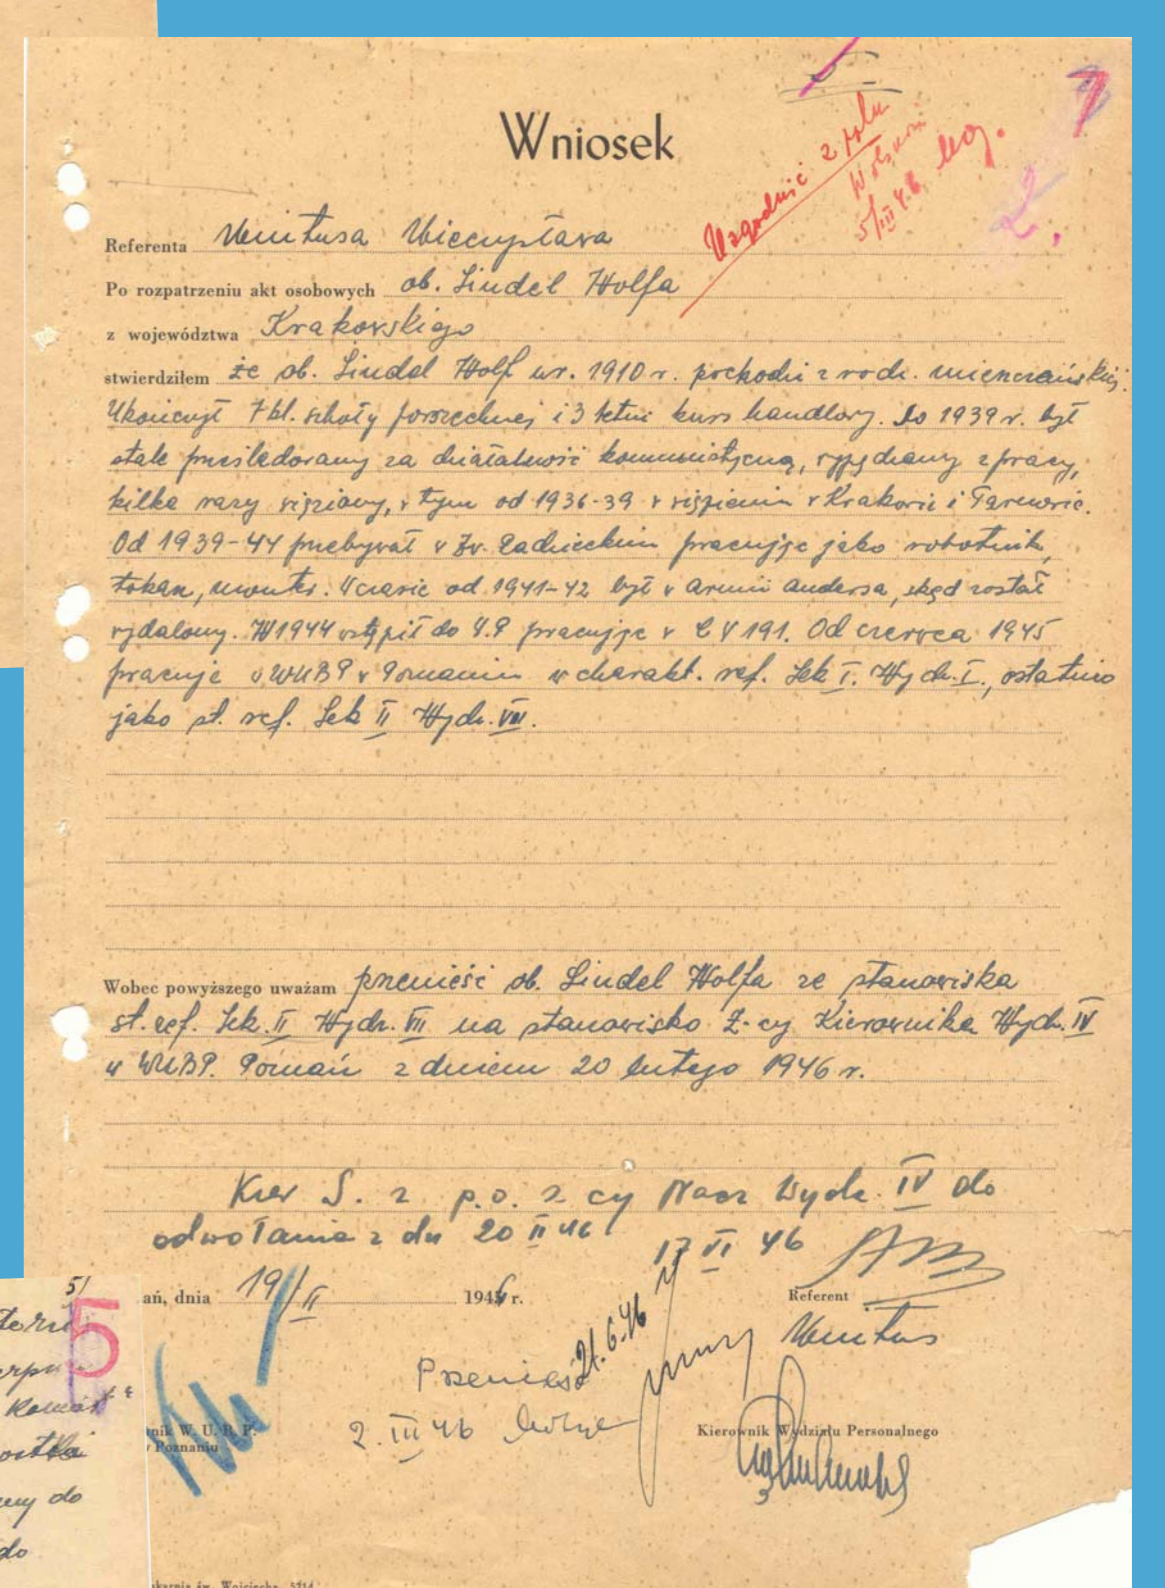 Wniosek
Uzgodnić z
5/III 46
Referenta Unitusa Mieczysława
Po rozpatrzeniu akt osobowych ob. Lindel Wolfa
z województwa Krakowskiego
stwierdziłem że ob. Lindel Wolf ur. 1910 r. pochodzi z rodz.
Ukończył 7 kl. szkoły powszechnej i 3 letni kurs handlowy. Do 1939 r. był
stale prześladowany za działalność komunistyczną, wypędzany z pracy,
kilka razy więziony, w tym od 1936-39 w więzieniu w Krakowie i Tarnowie.
Od 1939-44 przebywał w Zw. Radzieckim pracując jako robotnik,
tokarz, monter. W czasie od 1941-42 był w Armii Andersa, skąd został
wydalony. W 1944 wstąpił do W.P pracując w C W 191. Od czerwca 1945
pracuje w WUBP w Poznaniu w charakt. ref. Sek I. Wydz. I., ostatnio
jako st. ref. Sek II Wydz. VII.
Wobec powyższego uważam przenieść ob. Lindel Wolfa ze stanowiska
st. ref. Sek. II Wydz. VII na stanowisko Z-cy Kierownika Wydz. IV
w WUBP. Poznań z dniem 20 lutego 1946 r.
p.o. z cy Nacz Wydz. IV do
odwołania z dn 20 II 46
17 VI 46
ań, dnia 19/II 1946 r.
Referent
Unitus
Przenieść
21.6.46
2. III 46
nik W. U. B. P.
w Poznaniu
Kierownik Wydziału Personalnego
5/
5
ny do
do
ukarnia św. Wojciecha 5714